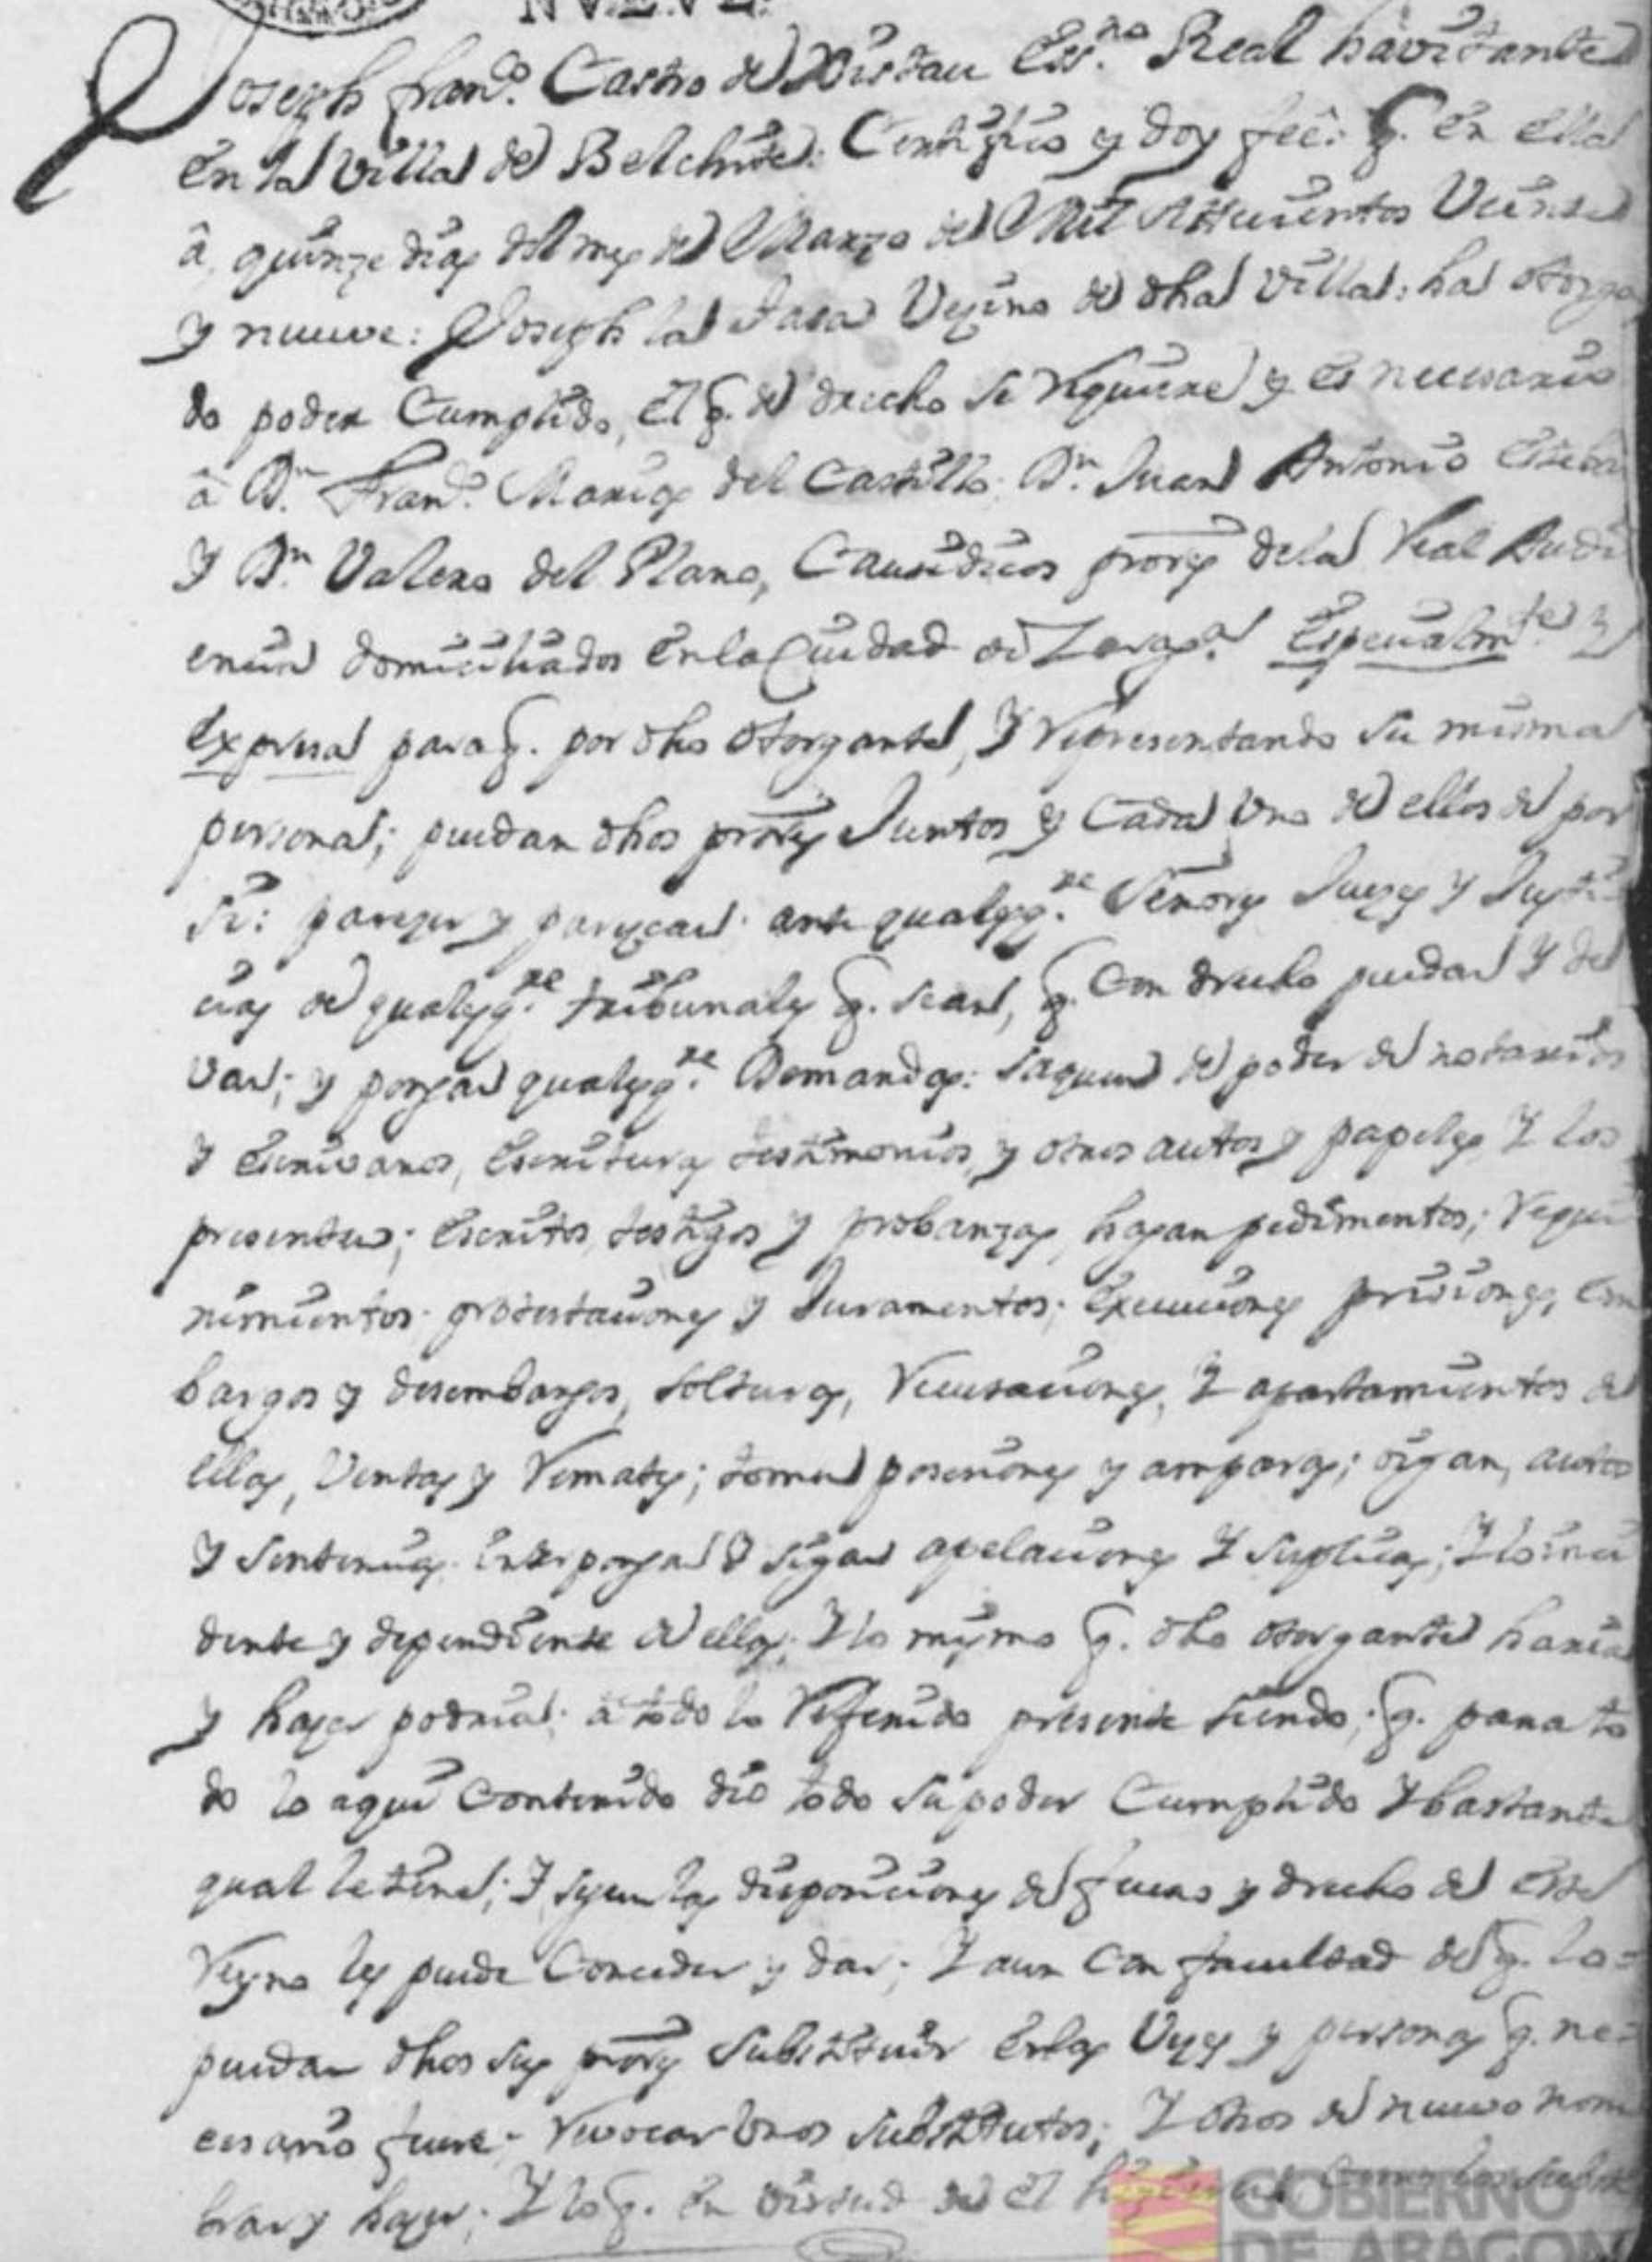 NVEVE.
Joseph Fran.co Castro de Vistau Ess.no Real havitante
en la Villa de Belchite: Certifico y doy feê: q. en ella
â quinze dias del mes de Marzo de Mil Settecientos Veinte
y nueve: Joseph la Vezino de dha Villa: ha otorga
do poder Cumplido, el q. de drecho se requiere y es necesario
â Dn. Fran.co Marias del Castillo Dn. Juan Antonio Esteban
y Dn. Valero del Plano, Causidicos prores de la Real Audi
encia domiciliados en la Ciudad de Zarag.a Especialm.te y
expresa para q. por dho otorgante, y representando su misma
persona; puedan dhos prores Juntos y Cada uno de ellos de por
si: parezer y parezcan ante qualesq.re Señores Juezes y Justi
cias de qualesq.re tribunales q. sean, q. con drecho puedan y de
van; y pongan qualesq.re Demandas: saquen de poder de notarios
y escrivanos, escrituras testimonios y otros autos y papeles y los
presenten; escritos, testigos y probanzas, hagan pedimentos; requi
rimientos. protestaciones y Juramentos; execuciones prisiones, em
bargos y desembargos, solturas, recusaciones, y apartamientos de
ellas, Ventas y remates; tomen posesiones y amparos; oigan, autos
y sentencias. interpongan y sigan apelaciones y suplicas; y lo inci
dente y dependiente de ellas; y lo mismo q. dho otorgante haria
y hazer podria; â todo lo referido presente siendo; q. para to
do lo aqui contenido dio todo su poder Cumplido y bastante
qual le tiene; y segun las disposiciones de fueros y drecho de este
Reyno les puede Conceder y dar; y aun con facultad de q. lo=
puedan dhos sus prores substituir en las Vezes y personas q. ne=
cesario fuere. revocar unos substitutos; y otros de nuevo nom
brar y hazer; y lo q. en virtud de el hizieren como los substi
GOBIERNO
DE ARAGON